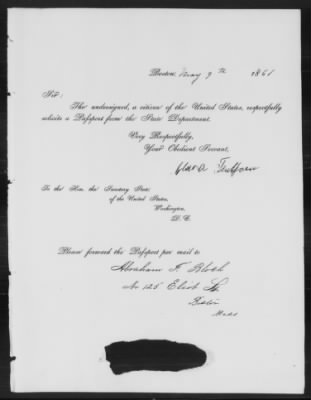 Boston May 9th 1861
Sir:
The undersigned, a citizen of the United States, respectfully
solicits a Passport from the State Department.
Very Respectfully,
Your Obedient Servant,
To the Hon. the Secretary State
of the United States,
Washington,
D. C.
Please forward the Passport per mail to
Abraham F. Bloch
No 125 Eliot St.
Boston
Mass